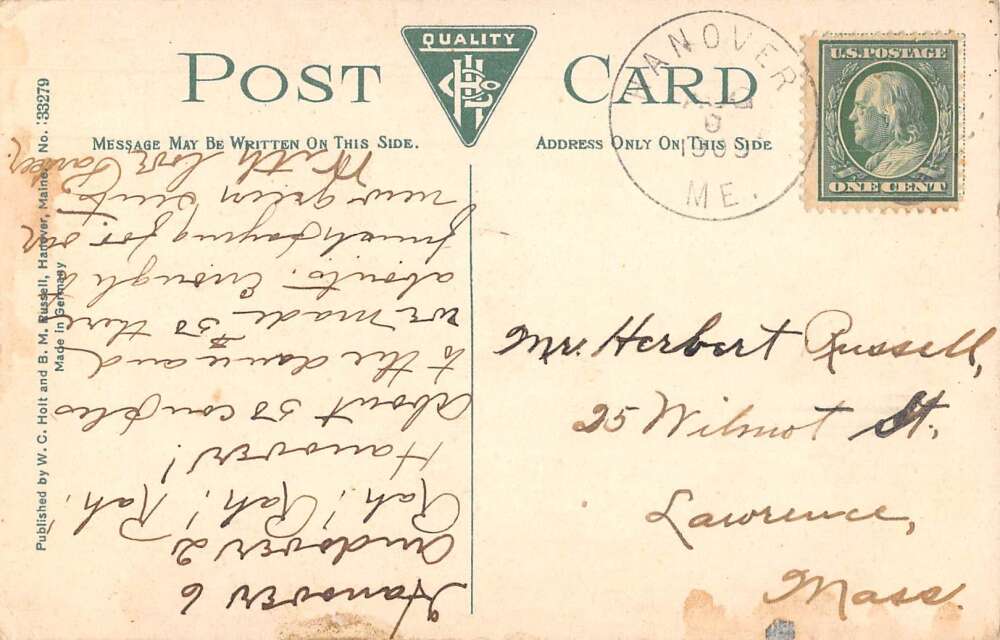 QUALITY
POST CARD
MESSAGE MAY BE WRITTEN ON THIS SIDE.
ADDRESS ONLY ON THIS SIDE
HANOVER
9
1909
ME.
U.S. POSTAGE
ONE CENT
Published by W. C. Holt and B. M. Russell, Hanover, Maine. No. 33279
Made in Germany
Hanover 6
Andover 2
Rah! Rah! Rah!
Hanover!
About 50 couples
to the dance and
we made $30 there
abouts. Enough to
finish paying for our
new green suits
With love
Mr. Herbert Russell,
25 Wilmot St.,
Lawrence,
Mass.